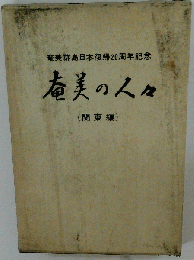 奄美群島日本復帰20周年記念
奄美の人々
(関東編)